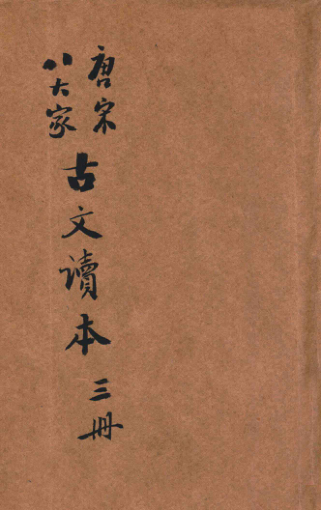 唐宋
八大家
古文讀本
三冊